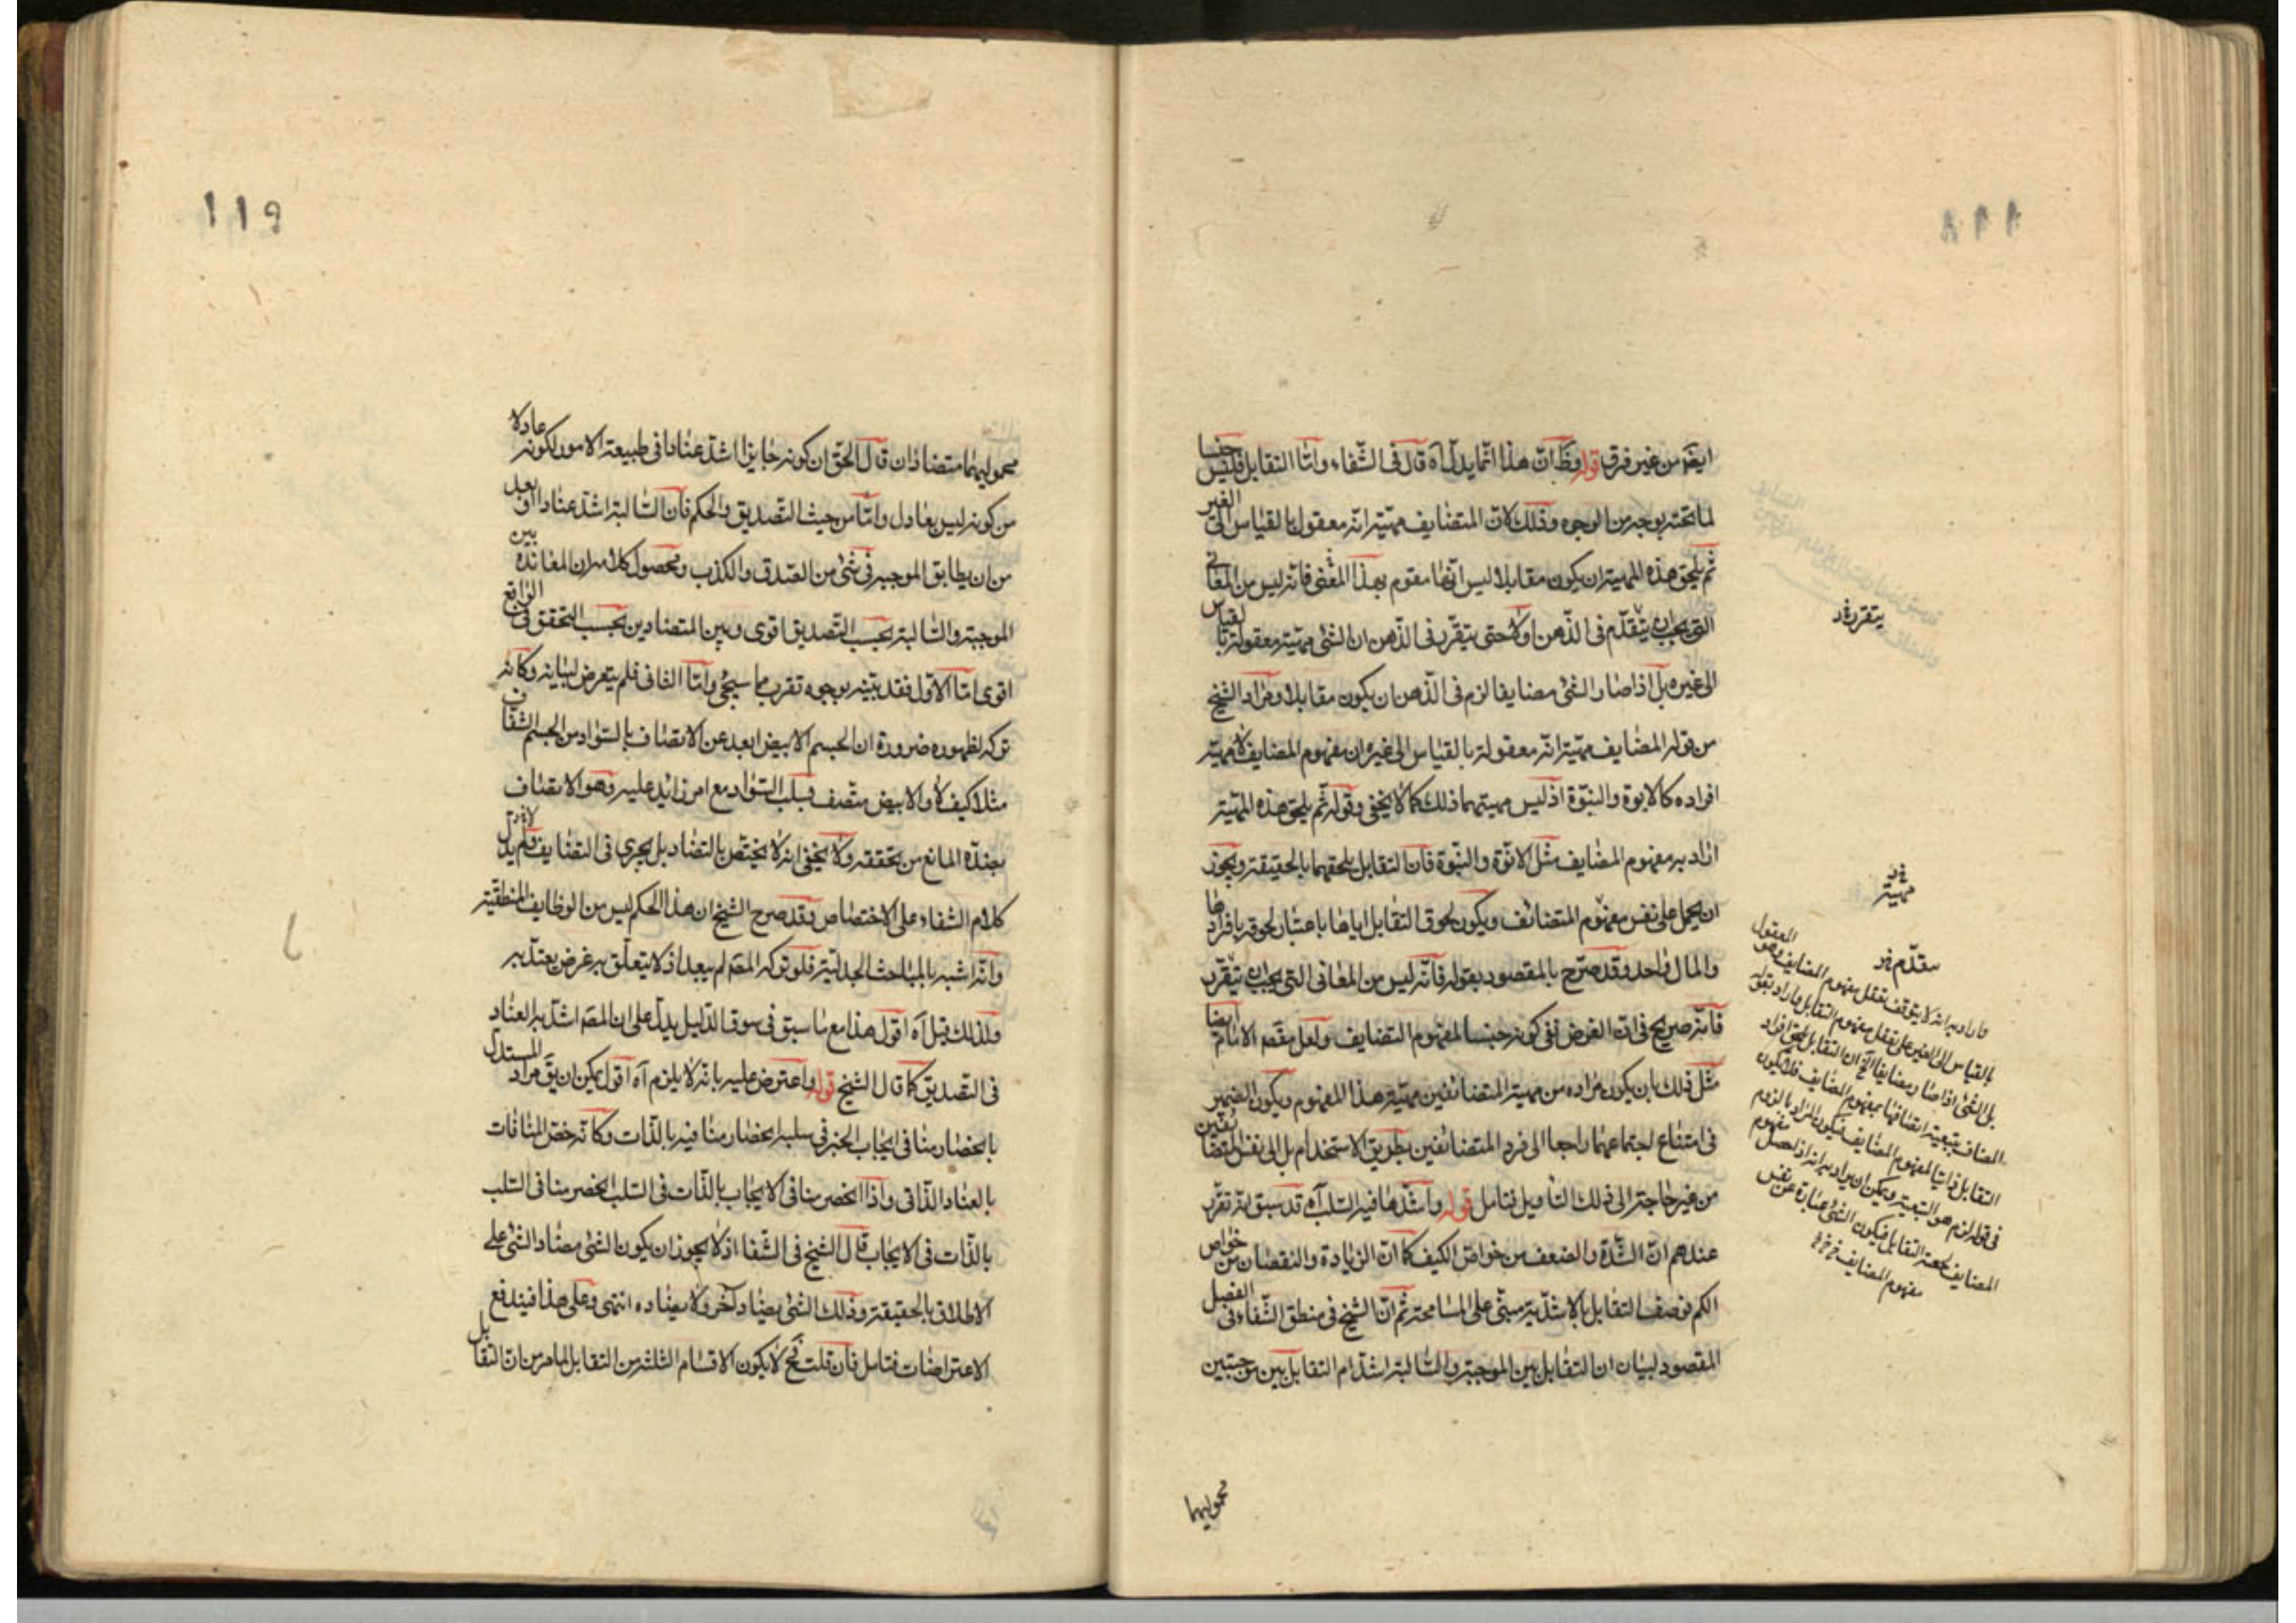 ١١٨
ايضا من غير فرق قوله وظ ان هذا انما يدل آه قال فى الشفاء واما التقابل فليس جنسا
لما تحته بوجه من الوجوه وذلك لان المتضايف مهيته انه معقول بالقياس الى الغير
ثم يلحق هذه المهية ان يكون مقابلا ليس انها مقوم بهذا المعنى فانه ليس من المعانى
التى يجب ان يتقدم فى الذهن اولا حتى يتقرر فى الذهن ان الشئ مهيته معقولة بالقياس
الى غيره بل اذا صار الشئ مضايفا لزم فى الذهن ان يكون مقابلا ومراد الشيخ
من قوله المضايف مهيته انه معقولة بالقياس الى غيره ان مفهوم المضايف لا مهية
افراده كالابوة والبنوة اذ ليس مهيتهما ذلك كما لا يخفى وقوله ثم يلحق هذه المهية
اراد به مفهوم المضايف مثل الابوة والبنوة فان التقابل يلحقهما بالحقيقة ويجوز
ان يحمل على نفس مفهوم المتضائف ويكون لحوق التقابل اياها باعتبار لحوقه بافرادها
والمال واحد وقد صرح بالمقصود بقوله فانه ليس من المعانى التى يجب ان يتقرر
فانه صريح فى ان الغرض نفى كونه جنسا لمفهوم التضايف ولعل مقصد الامام ايضا
مثل ذلك بان يكون مراده من مهية المتضائفين مهية هذا المفهوم ويكون الضمير
فى امتناع اجتماعهما راجعا الى فرد المتضائفين بطريق الاستخدام بل الى نفس المتضائفين
من غير حاجة الى ذلك التأويل فتامل قوله واشدها فيه السلب آه قد سبق انه تقرر
عندهم ان الشدة والضعف من خواص الكيف كما ان الزيادة والنقصان من خواص
الكم فوصف التقابل بالاشدية مبنى على المسامحة ثم ان الشيخ فى منطق الشفاء فى الفصل
المقصود لبيان ان التقابل بين الموجبة والسالبة اشد ام التقابل بين موجبتين
يتقرر
مهية
يتقدم
فاراد به انه لا يتوقف تعقل مفهوم المضايف وهو المعقول
بالقياس الى الغير على تعقل مفهوم التقابل واراد بقوله
بل الشئ اذا صار مضايفا الخ ان التقابل يلحق افراد
المضاف بتبعية اتصافها بمفهوم المضايف فلا يكون
التقابل ذاتيا لمفهوم المضايف فيكون المراد بالزوم
فى قوله لزم هو التبعية ويمكن ان يراد به انه اذا حصل مفهوم
المضايف لحقه التقابل فيكون الشئ عبارة عن نفس
مفهوم المضايف
محموليهما
١١٩
محموليهما متضادان قال الحق ان كونه جايرا اشد عنادا فى طبيعة الامور لكونه عادلا
من كونه ليس بعادل واما من حيث التصديق والحكم فان السالبة اشد عنادا وابعد
من ان يطابق الموجبة فى شئ من الصدق والكذب ومحصول كلامه ان المعاندة بين
الموجبة والسالبة بحسب التصديق اقوى وبين المتضادين بحسب التحقق فى الواقع
اقوى اما الاول فقد بينه بوجوه تقرب مما سيجئ واما الثانى فلم يتعرض لبيانه وكانه
تركه لظهوره ضرورة ان الجسم الابيض ابعد عن الاتصاف بالسواد من الجسم الشفاف
مثلا كيف لا والابيض متصف بسلب السواد مع امر زائد عليه وهو الاتصاف
بضده المانع من تحققه ولا يخفى انه لا يختص بالتضاد بل يجرى فى التضايف ولم يدل
كلام الشفاء على الاختصاص وقد صرح الشيخ ان هذا الحكم ليس من الوظايف المنطقية
وانه اشبه بالمباحث الجدلية فلو تركه المصه لم يبعد اذ لا يتعلق به غرض يعتد به
ولذلك قيل آه اقول هذا مع ما سبق فى سوق الدليل يدل على ان المصه اشد به العناد
فى التصديق كما قال الشيخ قوله واعترض عليه بانه لا يلزم آه اقول يمكن ان يق مراد المستدل
بانحصار منافى ايجاب الخبر فى سلبه انحصار منافيه بالذات وكانه خص المنافات
بالعناد الذاتى واذا انحصر منافى الايجاب بالذات فى السلب انحصر منافى السلب
بالذات فى الايجاب قال الشيخ فى الشفا اذ لا يجوز ان يكون الشئ مضاد الشئ على
الاطلاق بالحقيقة وذلك الشئ يضاد آخر ولا يضاده انتهى وعلى هذا فيندفع
الاعتراضات فتامل فان قلت فح لا يكون الاقسام الثلثة من التقابل لما مر من ان التقابل